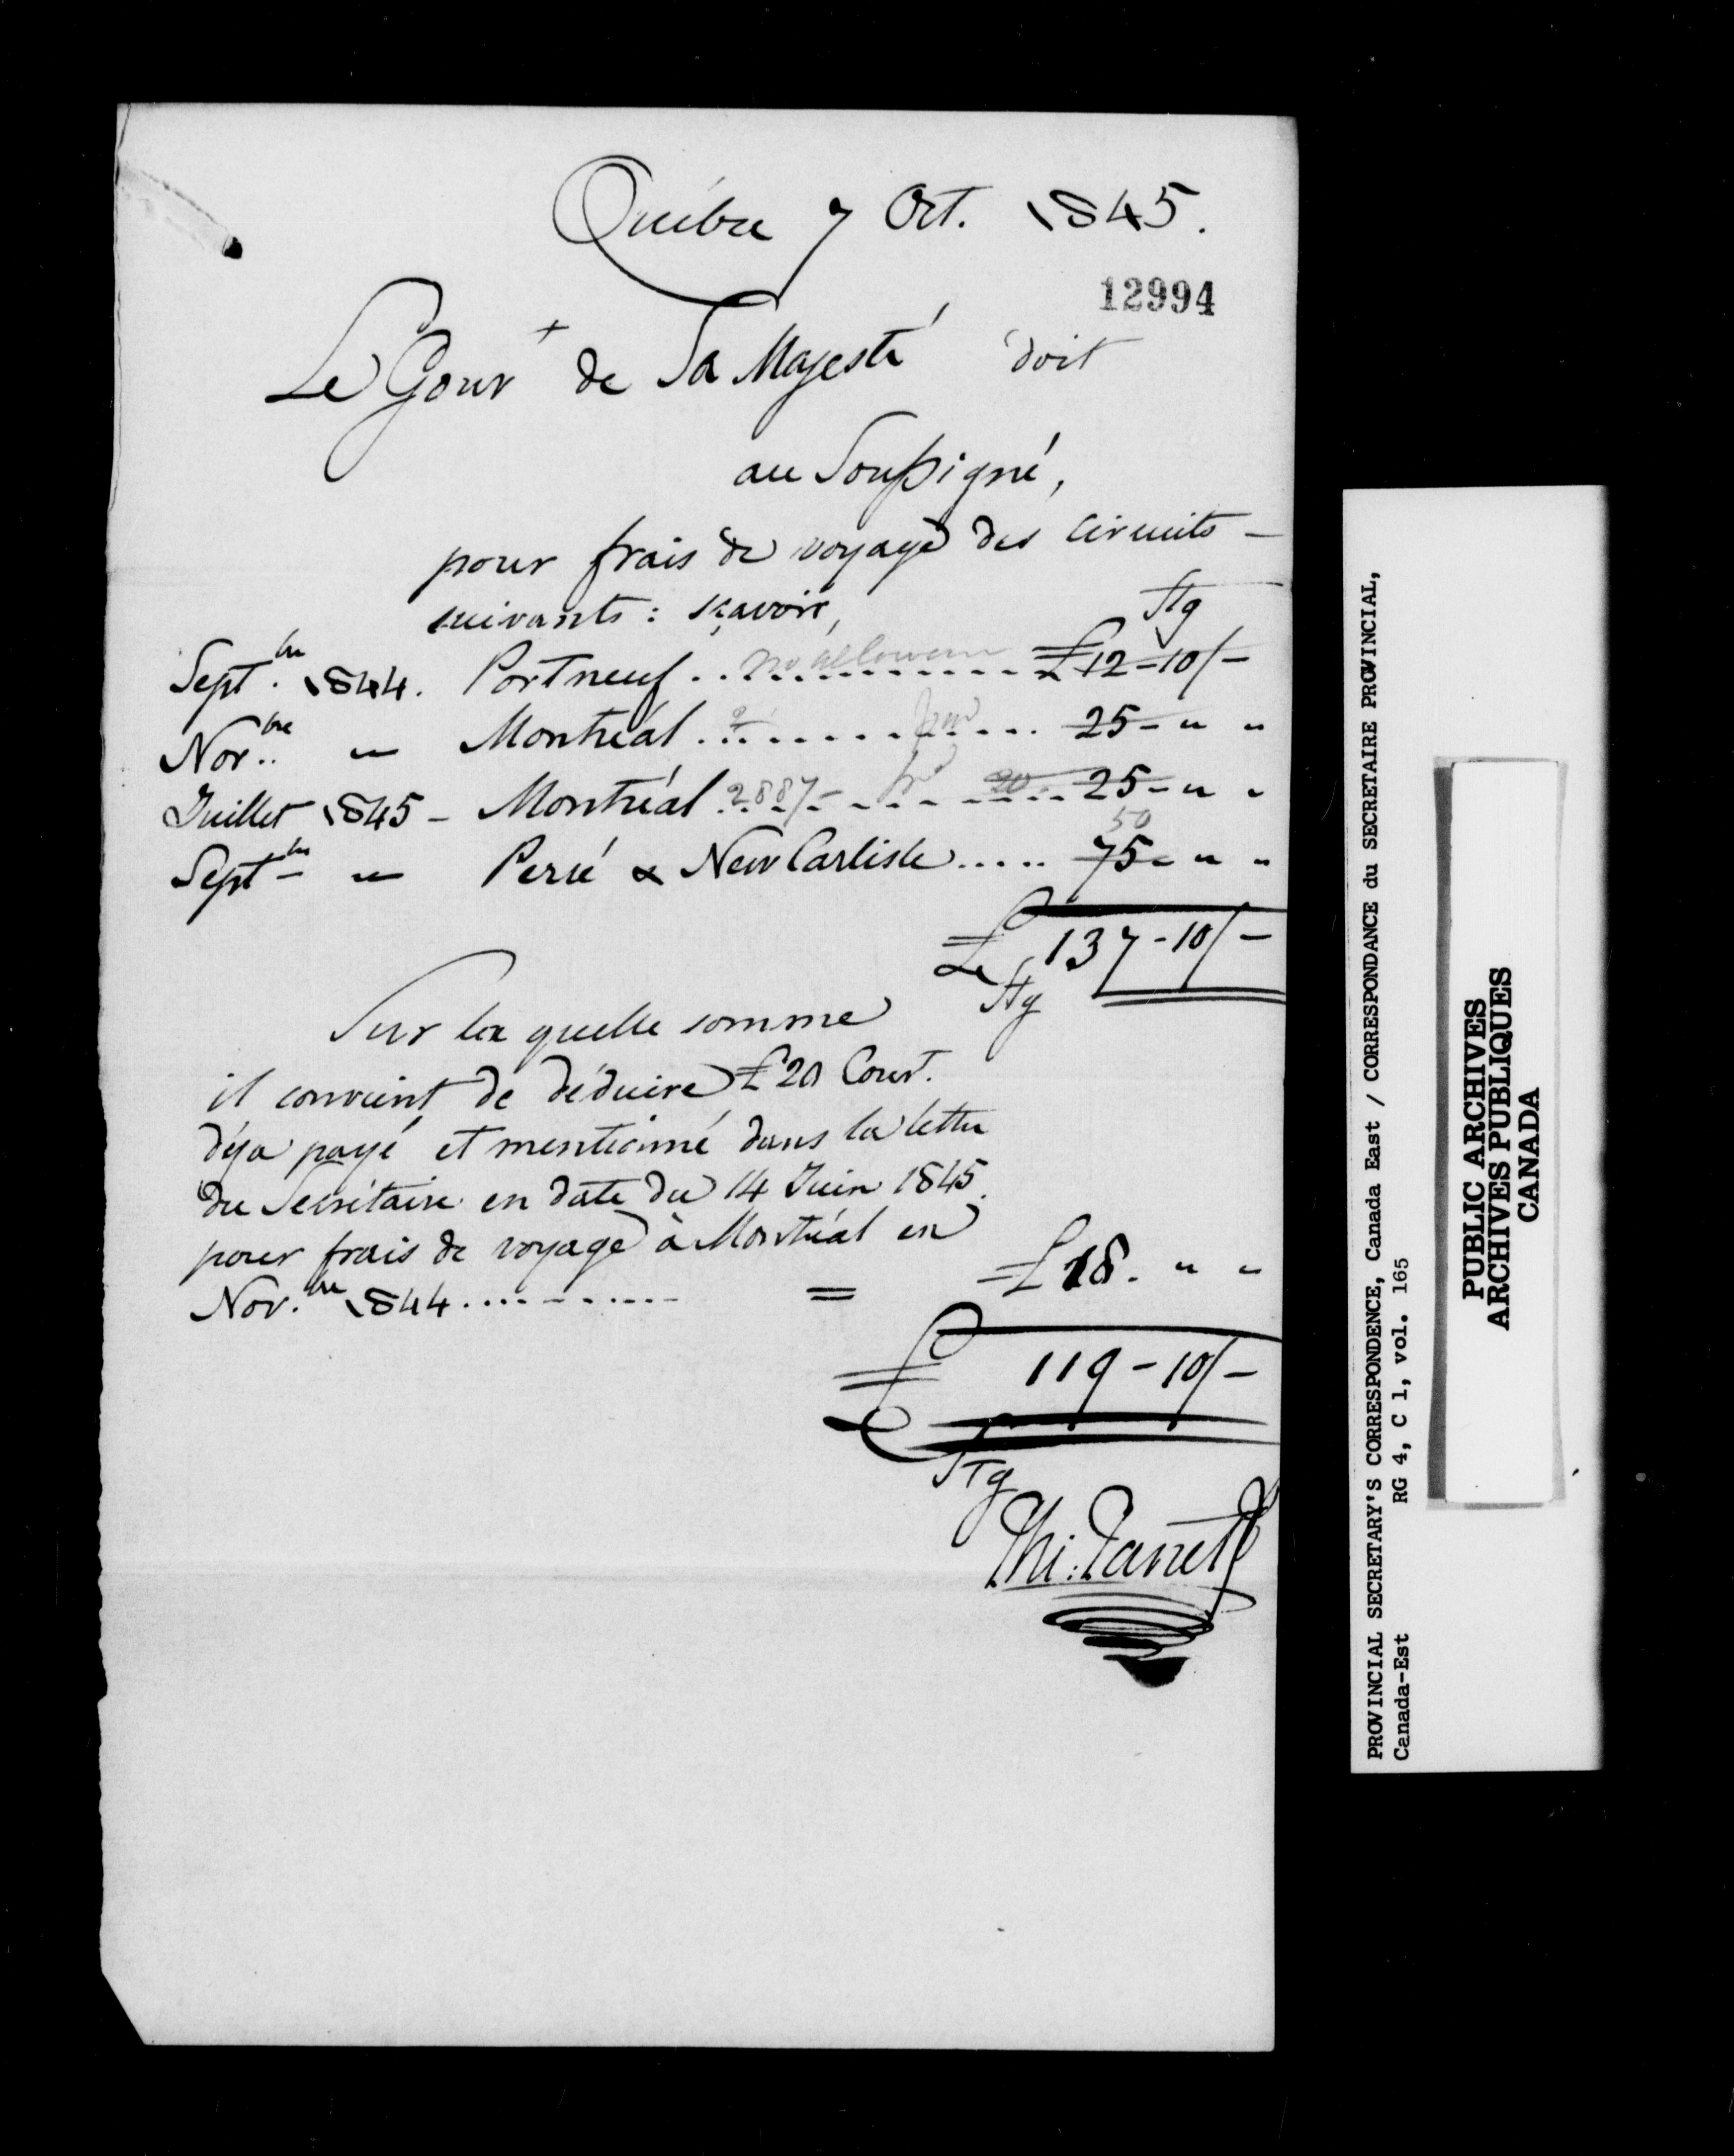 Québec 7 Oct. 1845.
12994
Le Gouvt de Sa Majesté doit
au Soussigné,
pour frais de voyage des circuits –
suivants : sçavoir,
Stg
Septbre. 1844. Portneuf . . no allowance . . £12–10/–
Novbre.. " Montréal . . . . . . . pd . . . 25– " "
Juillet 1845 – Montréal . 2887– . pd . 20 . . 25– " "
50
Septbre – " Percé & New Carlisle . . . . . 75– " "
£ 137–10/–
Stg
Sur la quelle somme
il convient de déduire £20 Court.
déja payé et mentionné dans la lettre
du Secrétaire en date du 14 Juin 1845.
pour frais de voyage à Montréal en
Nov.bre 1844 . . . . . . . . . . = £18. " "
£ 119–10/–
Stg
Phi: Panet
PROVINCIAL SECRETARY'S CORRESPONDENCE, Canada East / CORRESPONDANCE du SECRETAIRE PROVINCIAL,
Canada-Est RG 4, C 1, vol. 165
PUBLIC ARCHIVES
ARCHIVES PUBLIQUES
CANADA